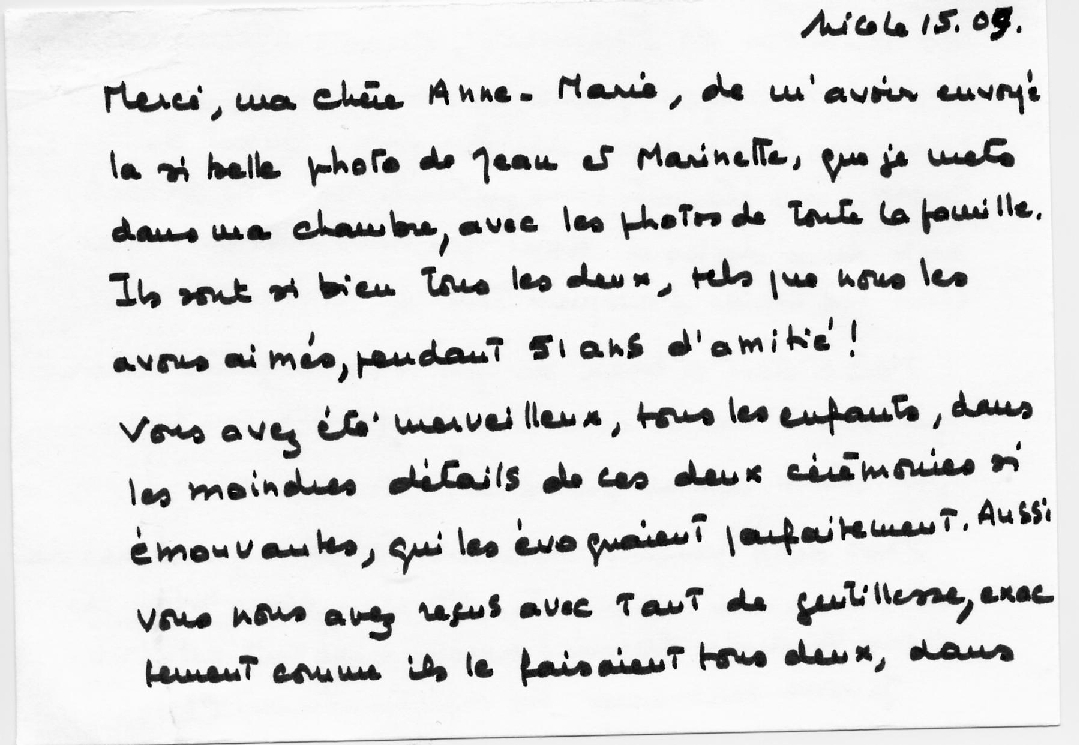 Nicole 15.09.
Merci, ma chère Anne-Marie, de m'avoir envoyé
la si belle photo de Jean et Marinette, que je mets
dans ma chambre, avec les photos de toute la famille.
Ils sont si bien tous les deux, tels que nous les
avons aimés, pendant 51 ans d'amitié !
Vous avez été merveilleux, tous les enfants, dans
les moindres détails de ces deux cérémonies si
émouvantes, qui les évoquaient parfaitement. Aussi
vous nous avez reçus avec tant de gentillesse, exac
tement comme ils le faisaient tous deux, dans